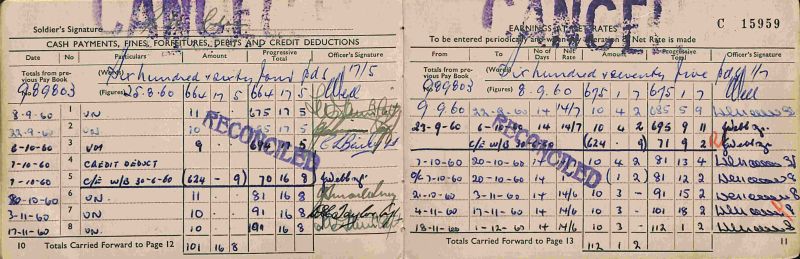 CANCEL
Soldier's Signature
CASH PAYMENTS, FINES, FORFEITURES, DEBITS AND CREDIT DEDUCTIONS
Date No Particulars Amount Progressive Total Officer's Signature
Totals from previous Pay Book (Words) Six hundred & sixty four pds 17/5
No 989803 (Figures) 25.8.60 664 17 5 664 17 5
8-9-60 1 VN 11 675 17 5
22-9-60 2 VN 10 17 5
6-10-60 3 VN 9 694 17 5
7-10-60 4 CREDIT DEDUCT
7-10-60 5 C/E W/B 30-6-60 (624 - 9) 70 16 8
20-10-60 6 VN 11 . 81 16 8
3-11-60 7 VN 10 . 91 16 8
17-11-60 8 VN 10 . 101 16 8
10 Totals Carried Forward to Page 12 101 16 8
RECONCILED
CANCEL
EARNINGS AT NET RATES C 15959
To be entered periodically and when any alteration of Net Rate is made
From To No of Days Net Rate Amount Progressive Total Officer's Signature
Totals from previous Pay Book (Words) Six hundred & seventy five pds 1/7
No 989803 (Figures) 8-9-60 675 1 7 675 1 7
9 9 60 22-9-60 14 14/7 10 4 2 685 5 9
23-9-60 6-10-60 14 14/7 10 4 2 695 9 11
C/E W/B 30-6-60 (624 . 9) 71 9 2
7-10-60 20-10-60 14 10 4 2 81 13 4
81 12 2
21-10-60 3-11-60 14 14/6 10 3 - 91 15 2
4-11-60 17-11-60 14 14/6 10 3 - 101 18 2
18-11-60 1-12-60 14 14/6 10 3 - 112 1 2
Totals Carried Forward to Page 13 112 1 2 11
RECONCILED